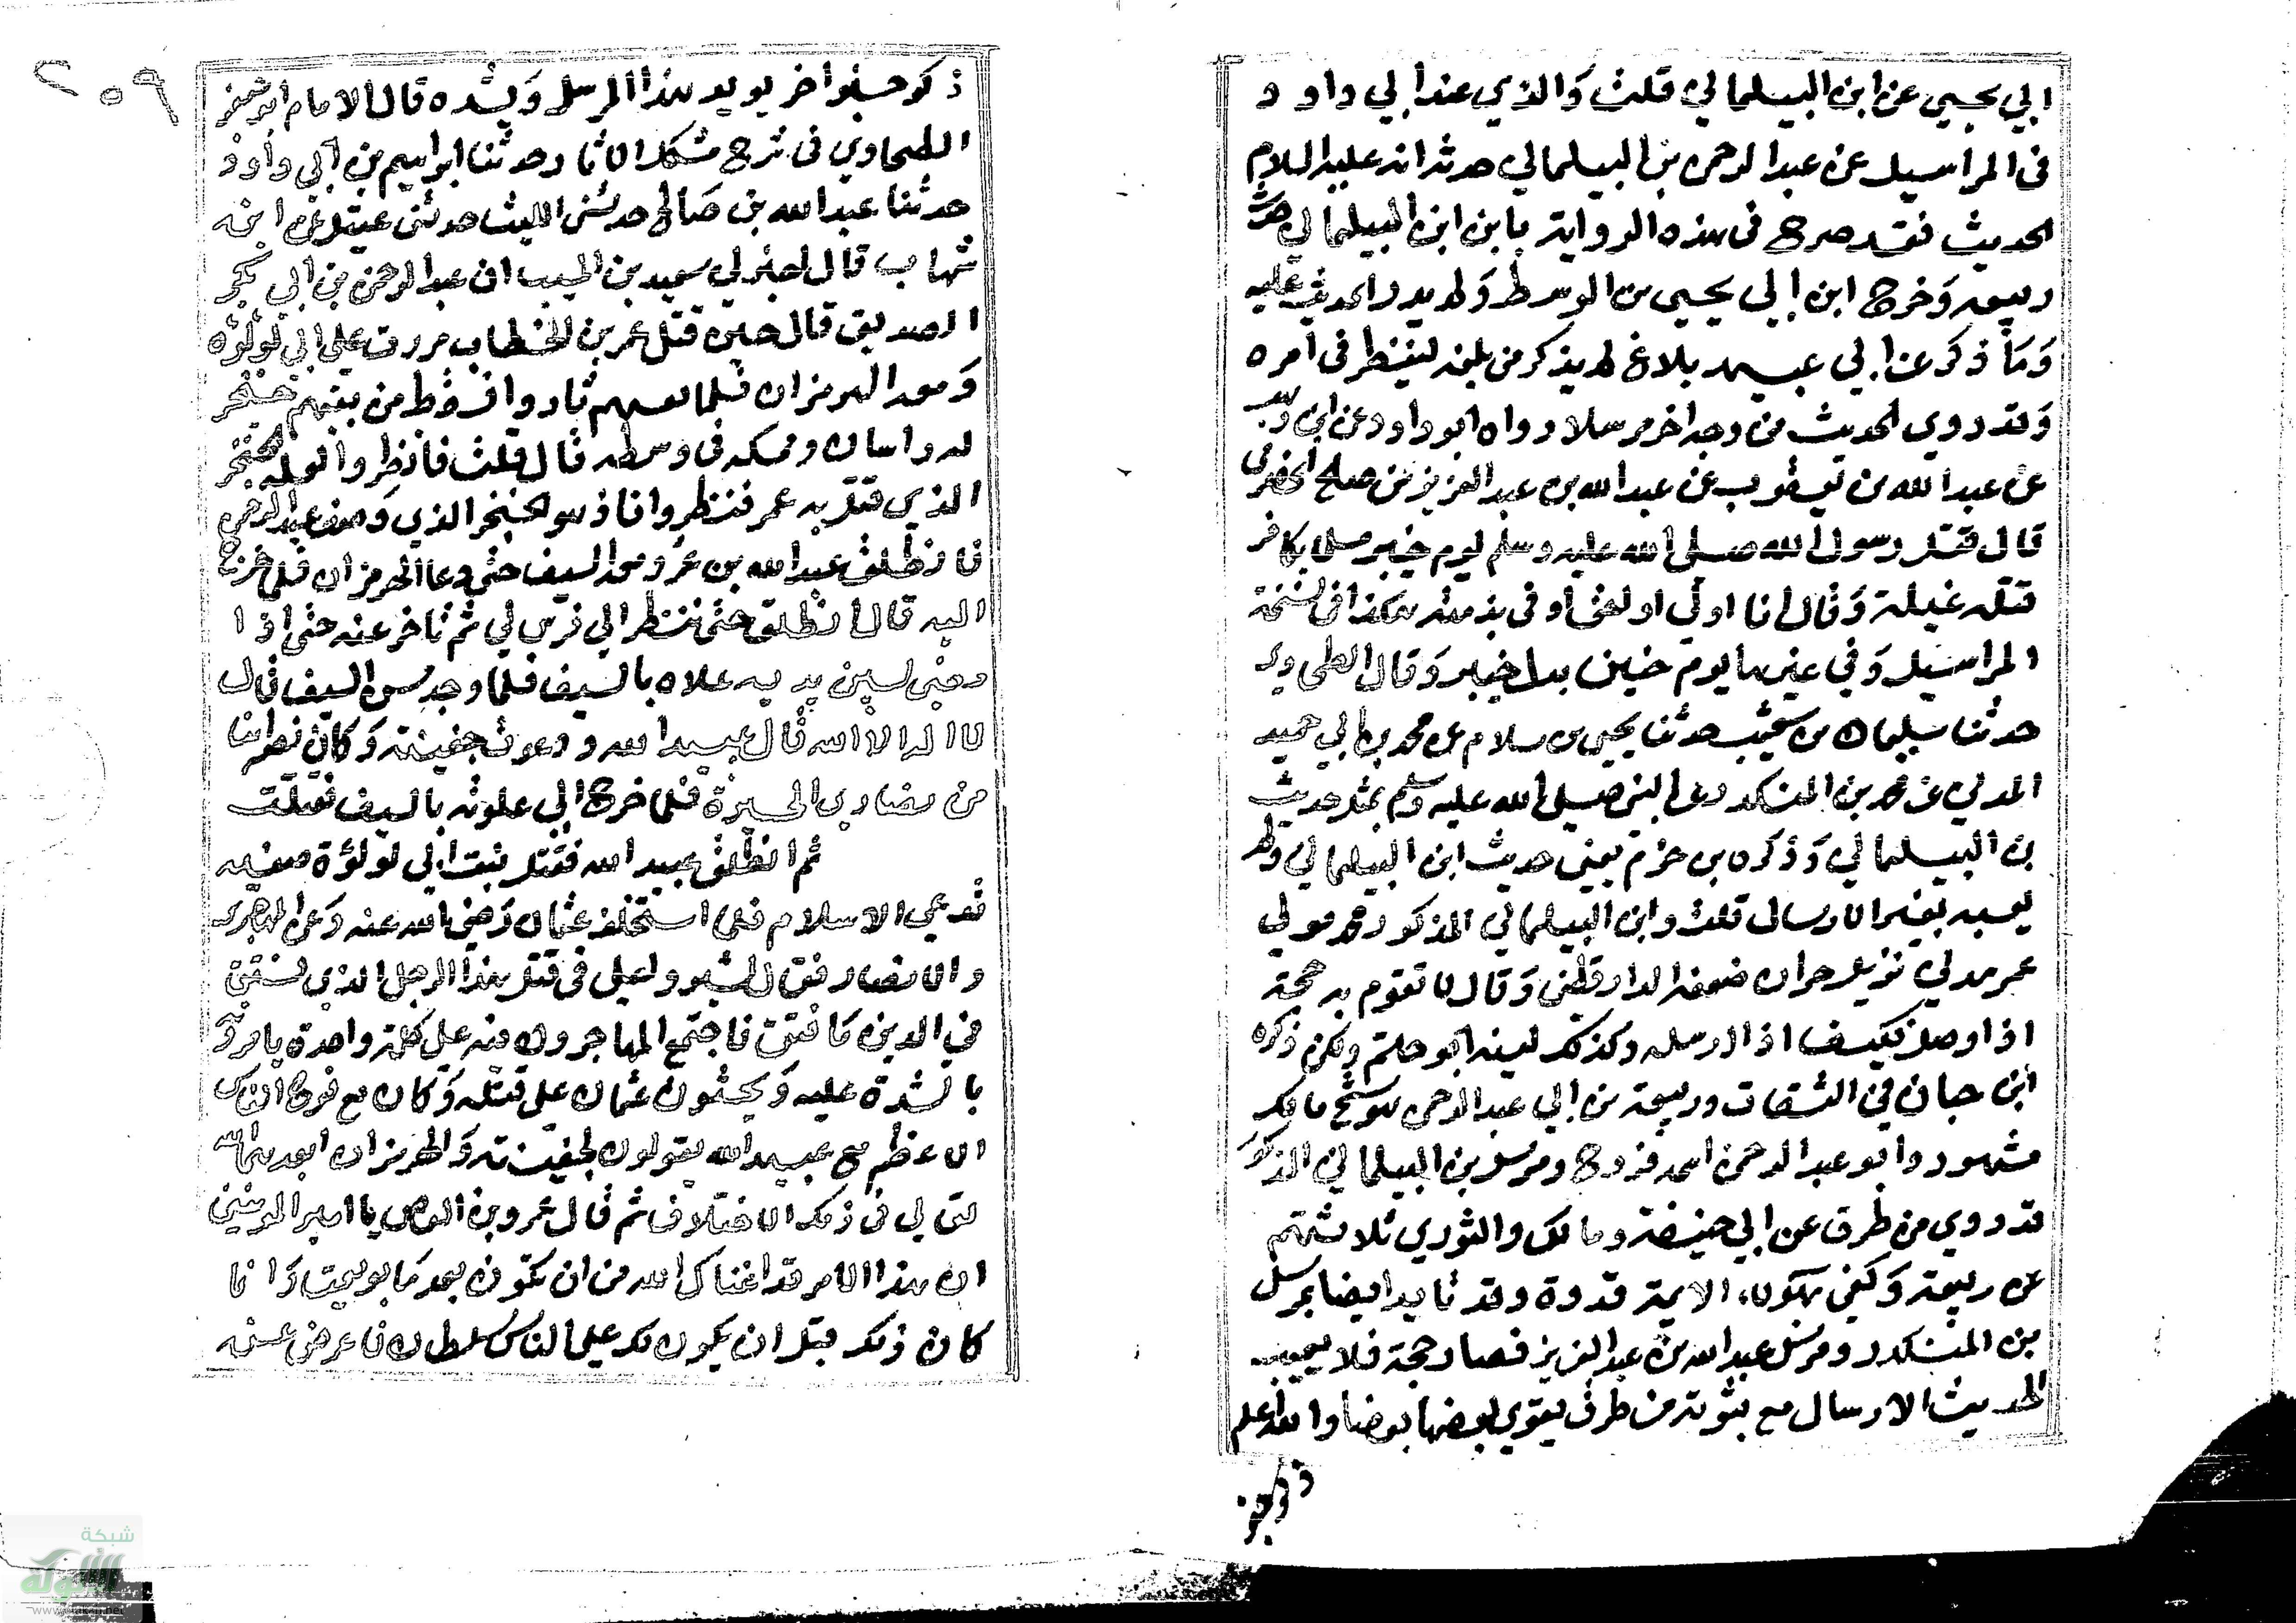 ابي يحيى عن ابن البيلماني قلت والذي عند ابي داود
في المراسيل عن عبد الرحمن بن البيلماني حدثه انه عليه السلام
الحديث فقد صرح في هذه الرواية بان ابن البيلماني حدث
ربيعه وخرج ابن ابي يحيى من الوسط ولم يدر الحديث عليه
وما ذكر عن ابي عبيد بلاغ لم يذكر من بلغه لينظر في امره
ولقد روي الحديث من وجه اخر مرسلا رواه ابو داود عن ابن وهب
عن عبد الله بن يعقوب عن عبد الله بن عبد العزيز بن صلح الحضرمي
قال قتل رسول الله صلى الله عليه وسلم يوم خيبر مسلما بكافر
قتله غيلة وقال انا اولى او احق اوفى بذمته هكذا في نسخة
المراسيل وفي غيرها يوم حنين بدل خيبر وقال الطحاوي
حدثنا سليمان بن شعيب حدثنا يحيى بن سلام عن محمد بن ابي حميد
المدني عن محمد بن المنكدر عن النبي صلى الله عليه وسلم بمثل حديث
بن البيلماني وذكره بن حزم يعني حديث ابن البيلماني ولم
يعبه بغير الارسال قلت وابن البيلماني المذكور محمد مولى
عمر مدني نزيل حران ضعفه الدارقطني وقال لا تقوم به حجة
اذا وصل فكيف اذا ارسله وكذلك لينه ابو حاتم ولكن ذكره
ابن حبان في الثقات وربيعة بن ابي عبد الرحمن هو شيخ مالك
مشهور وابو عبد الرحمن اسمه فروح ومرسل بن البيلماني المذكور
قد روي من طرق عن ابي حنيفة ومالك والثوري ثلاثتهم
عن ربيعة وكفى بهولاء الايمة قدوة وقد تايد ايضا بمرسل
بن المنكدر ومرسل عبد الله بن عبد العزيز فصار حجة فلا يعيب
الحديث الارسال مع ثبوته من طرق يقوي بعضها بعضا والله اعلم
٢٠٩
ذكر حديث اخر يويد هذا المرسل ويشده قال الامام ابو جعفر
الطحاوي في شرح مشكل الاثار حدثنا ابراهيم بن ابي داود
حدثنا عبد الله بن صالح حدثني الليث حدثني عقيل عن ابن
شهاب قال اخبرني سعيد بن المسيب ان عبد الرحمن بن ابي بكر
الصديق قال حين قتل عمر بن الخطاب مررت على ابي لولوه
ومعه الهرمزان فلما بغتهم ثاروا فسقط من بينهم خنجر
له راسان وممسكه في وسطه قال قلت فانظروا لعله الخنجر
الذي قتل به عمر فنظروا فاذا هو الخنجر الذي وصف عبد الرحمن
فانطلق عبيد الله بن عمر ومعه السيف حتى دعا الهرمزان فلما خرج
اليه قال انطلق حتى تنظر الى فرس لي ثم تاخر عنه حتى اذا
مضى بين يديه علاه بالسيف فلما وجد مس السيف قال
لا اله الا الله قال عبيد الله ودعوت جفينة وكان نصرانيا
من نصارى الحيرة فلما خرج الي علوته بالسيف فصلت
ثم انطلق عبيد الله فقتل بنت ابي لولوة صغيره
تدعي الاسلام فلما استخلف عثمان رضي الله عنه دعى المهاجرين
والانصار فقال اشيروا علي في قتل هذا الرجل الذي فتق
في الدين ما فتق فاجتمع المهاجرون فيه على كلمة واحدة يامرونه
بالشدة عليه ويحثون عثمان على قتله وكان مع فوج الناس
الاعظم مع عبيد الله يقولون لجفينة والهرمزان ابعدهما الله
في ذلك الاختلاف ثم قال عمرو بن العاص يا امير المومنين
ان هذا الامر قد اغناك الله من ان يكون بعد ما بويعت وانما
كان ذلك قبل ان يكون لك على الناس سلطان فاعرض عنه
شبكة
الألوكة
www.alukah.net